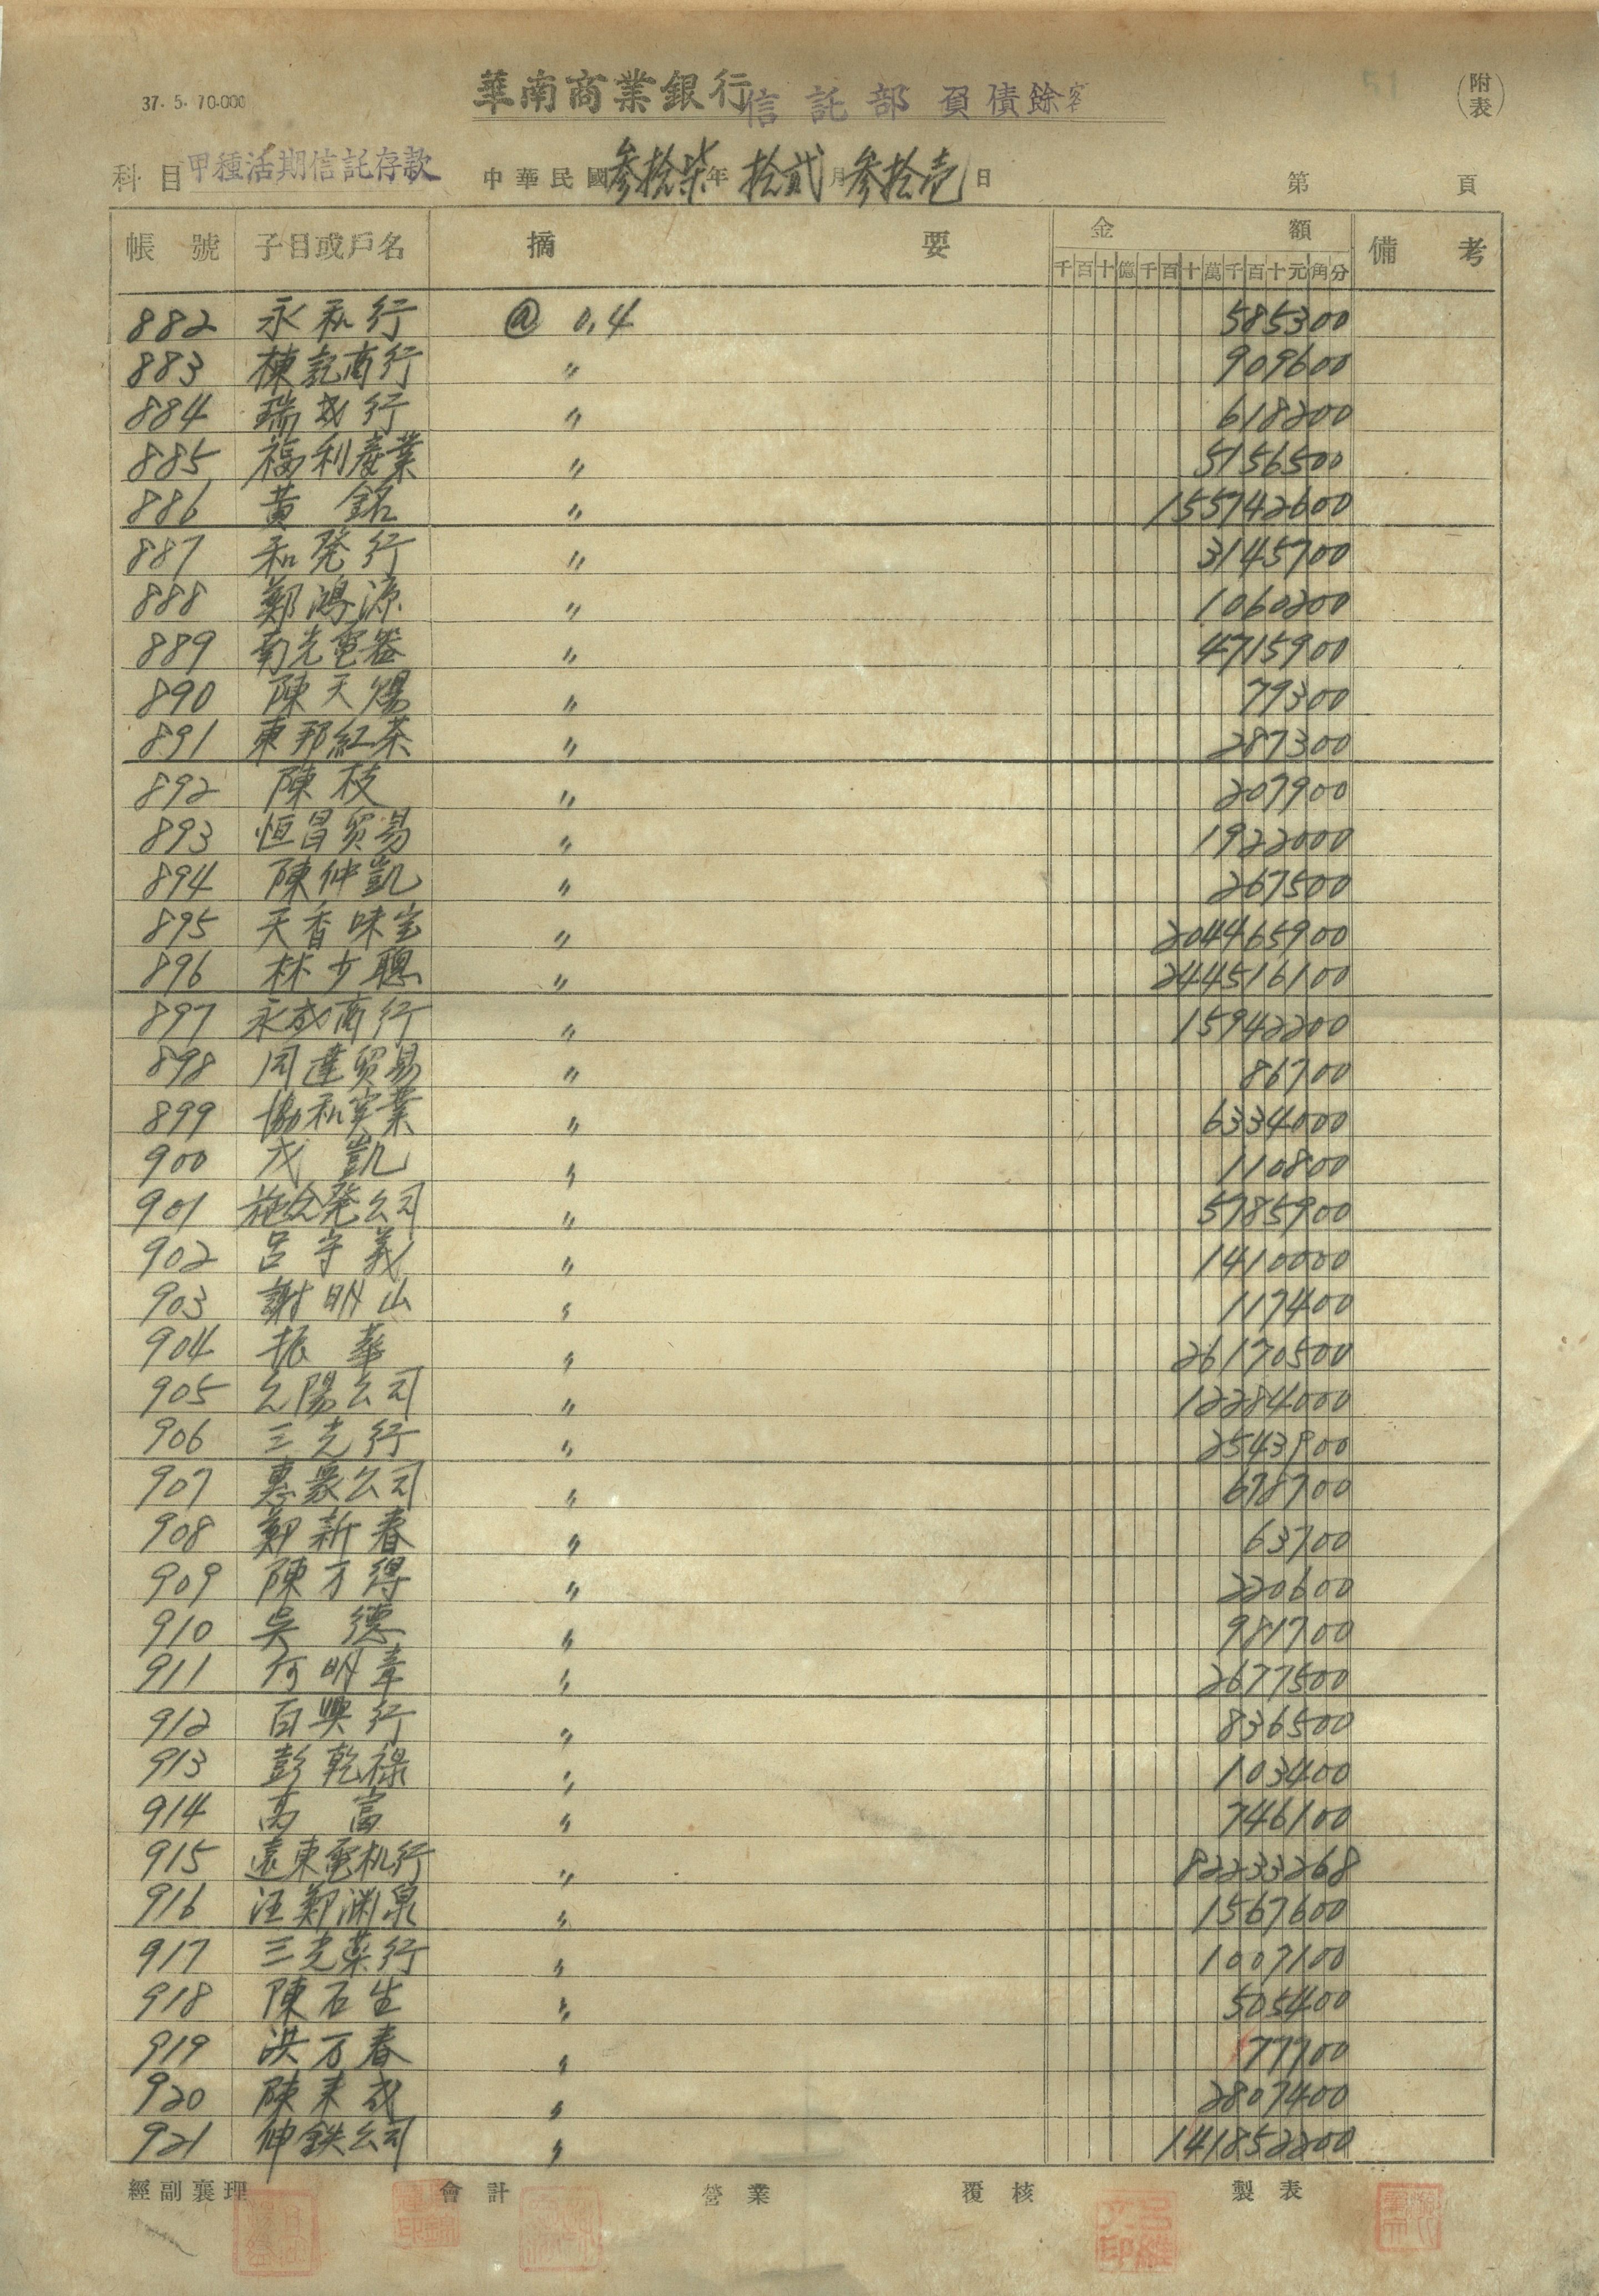 37. 5. 70.000
華南商業銀行信託部 負債餘額
(附表)
科目 甲種活期信託存款 中華民國參拾柒年拾貳月參拾壱日 第 頁
帳號 子目或戶名 摘要 金額 備考
千百十億千百十萬千百十元角分
882 永和行 @ 0.4 585300
883 棟記商行 〃 909600
884 瑞成行 〃 618200
885 福利産業 〃 5156500
886 黃銘 〃 155742600
887 和発行 〃 3145700
888 鄭鴻源 〃 1060200
889 南光電器 〃 4715900
890 陳天賜 〃 79300
891 東邦紅茶 〃 287300
892 陳枝 〃 207900
893 恒昌贸易 〃 1922000
894 陳仲凱 〃 267500
895 天香味宝 〃 204465900
896 林少聰 〃 244516100
897 永成商行 〃 15942200
898 同達贸易 〃 86700
899 協和実業 〃 6334000
900 戊凱 〃 110800
901 施合発公司 〃 5785900
902 呂守義 〃 1410000
903 謝明山 〃 117400
904 振華 〃 26170500
905 允陽公司 〃 12284000
906 三光行 〃 2543900
907 惠衆公司 〃 678700
908 鄭新春 〃 63700
909 陳才得 〃 220600
910 吳德 〃 981700
911 何明章 〃 2677500
912 百興行 〃 836500
913 彭乾祿 〃 103400
914 高富 〃 746100
915 遠東電机行 〃 82233268
916 汪鄭渊泉 〃 1567600
917 三光薬行 〃 1007100
918 陳石生 〃 505400
919 洪万春 〃 77700
920 陳来成 〃 2807400
921 伸鉄公司 〃 141852200
經副襄理 會計 營業 覆核 製表